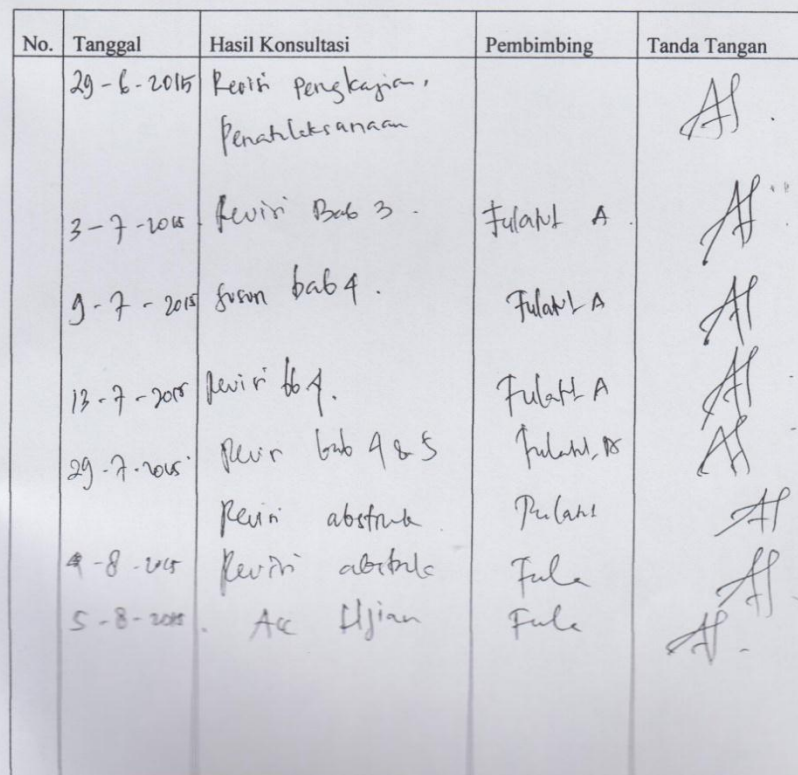 No. Tanggal Hasil Konsultasi Pembimbing Tanda Tangan
29-6-2015 Revisi Pengkajian,
Penatalaksanaan
3-7-2015 Revisi Bab 3.
9-7-2015 Susun bab 4.
13-7-2015 Revisi bb 4.
29-7-2015 Revisi bab 4 & 5
Revisi abstrak
4-8-2015 Revisi abstrak
5-8-2015. Acc Ujian